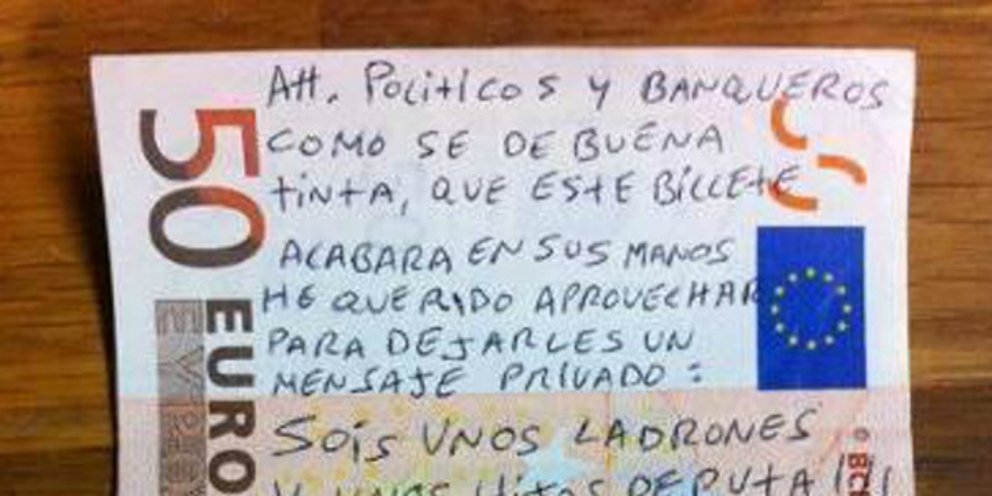 Att. Politicos y BANQUEROS
COMO SE DE BUENA
tinta, QUE ESTE BILLETE
ACABARA EN SUS MANOS
HE QUERIDO APROVECHAR
PARA DEJARLES UN
MENSAJE PRIVADO:
SOIS UNOS LADRONES
Y UNOS HIJOS DE PUTA !!!
50 EURO
ΕΥΡΩ
BCE